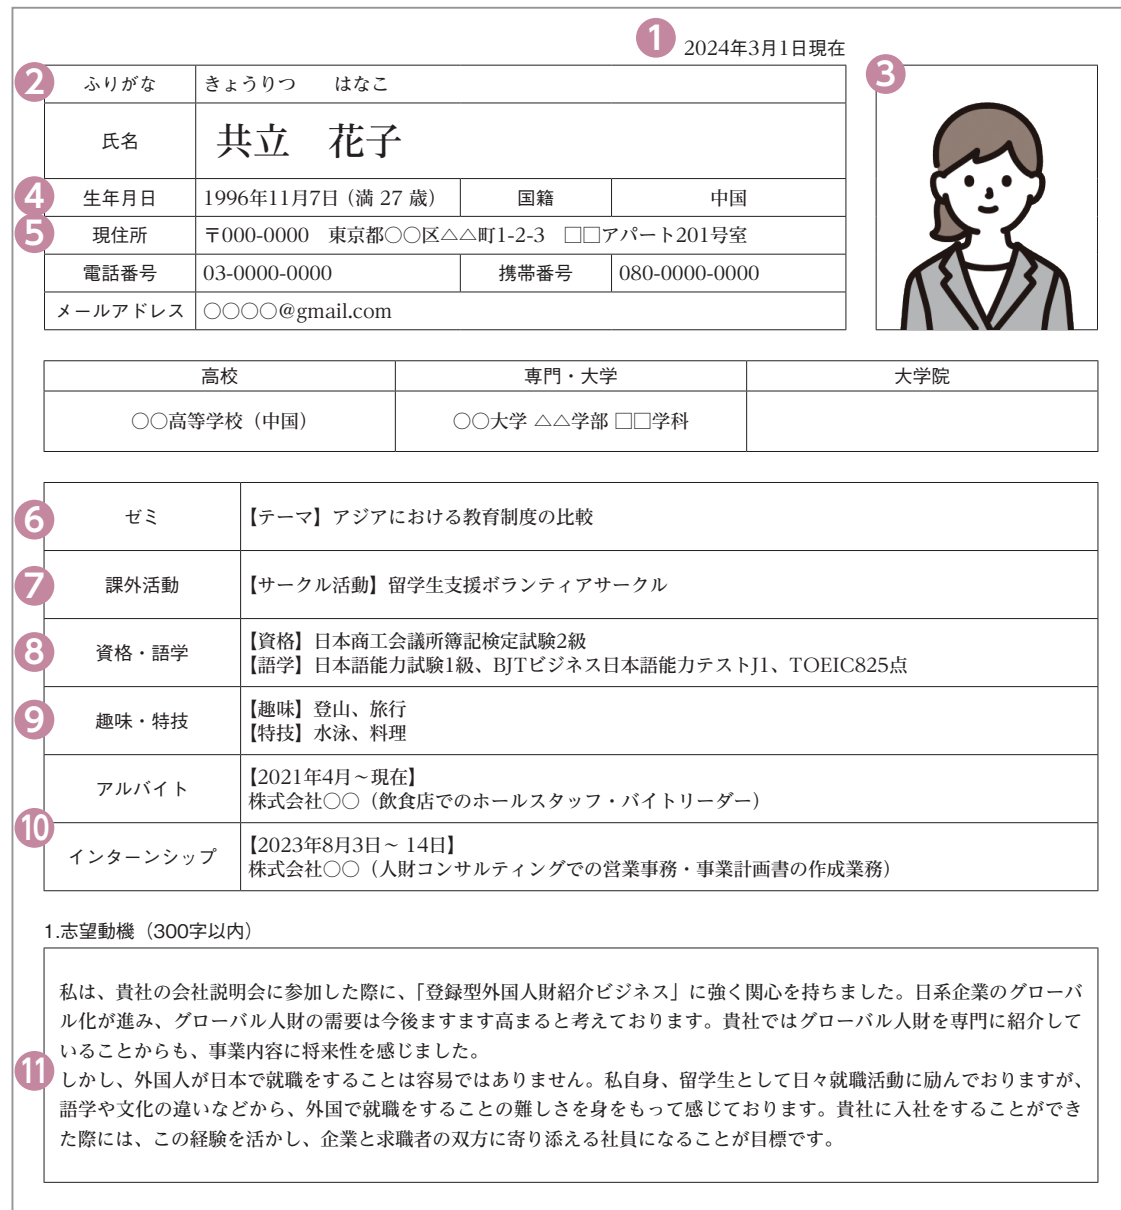 ❶ 2024年3月1日現在
❷ ふりがな きょうりつ　はなこ
❸
氏名 共立　花子
❹ 生年月日 1996年11月7日（満 27 歳） 国籍 中国
❺ 現住所 〒000-0000　東京都〇〇区△△町1-2-3　□□アパート201号室
電話番号 03-0000-0000 携帯番号 080-0000-0000
メールアドレス 〇〇〇〇@gmail.com
高校 専門・大学 大学院
〇〇高等学校（中国） 〇〇大学 △△学部 □□学科
❻ ゼミ 【テーマ】アジアにおける教育制度の比較
❼ 課外活動 【サークル活動】留学生支援ボランティアサークル
❽ 資格・語学 【資格】日本商工会議所簿記検定試験2級
【語学】日本語能力試験1級、BJTビジネス日本語能力テストJ1、TOEIC825点
❾ 趣味・特技 【趣味】登山、旅行
【特技】水泳、料理
❿
アルバイト 【2021年4月～現在】
株式会社〇〇（飲食店でのホールスタッフ・バイトリーダー）
インターンシップ 【2023年8月3日～ 14日】
株式会社〇〇（人財コンサルティングでの営業事務・事業計画書の作成業務）
1.志望動機（300字以内）
⓫
私は、貴社の会社説明会に参加した際に、「登録型外国人財紹介ビジネス」に強く関心を持ちました。日系企業のグローバ
ル化が進み、グローバル人財の需要は今後ますます高まると考えております。貴社ではグローバル人財を専門に紹介して
いることからも、事業内容に将来性を感じました。
しかし、外国人が日本で就職をすることは容易ではありません。私自身、留学生として日々就職活動に励んでおりますが、
語学や文化の違いなどから、外国で就職をすることの難しさを身をもって感じております。貴社に入社をすることができ
た際には、この経験を活かし、企業と求職者の双方に寄り添える社員になることが目標です。